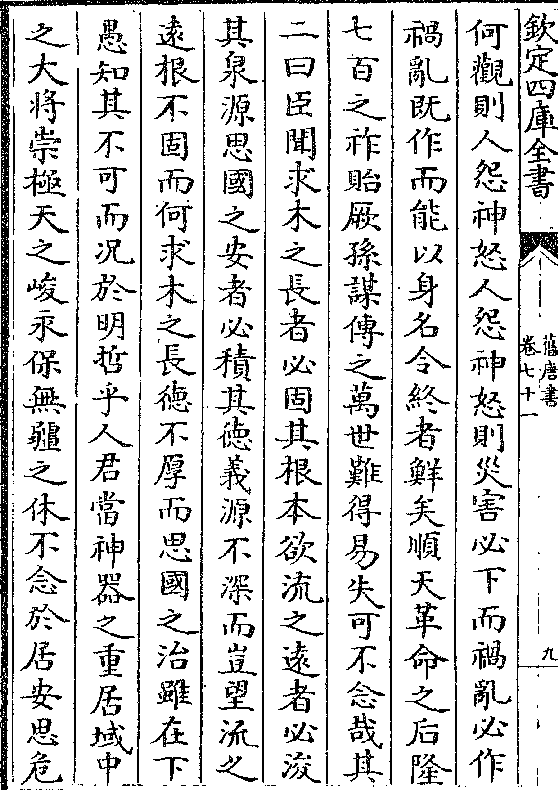 欽定四庫全書
舊唐書
卷七十一
九
何觀則人怨神怒人怨神怒則災害必下而禍亂必作
禍亂既作而能以身名令終者鮮矣順天革命之后隆
七百之祚貽厥孫謀傳之萬世難得易失可不念哉其
二曰臣聞求木之長者必固其根本欲流之遠者必浚
其泉源思國之安者必積其德義源不深而豈望流之
遠根不固而何求木之長德不厚而思國之治雖在下
愚知其不可而況於明哲乎人君當神器之重居域中
之大將崇極天之峻永保無疆之休不念於居安思危